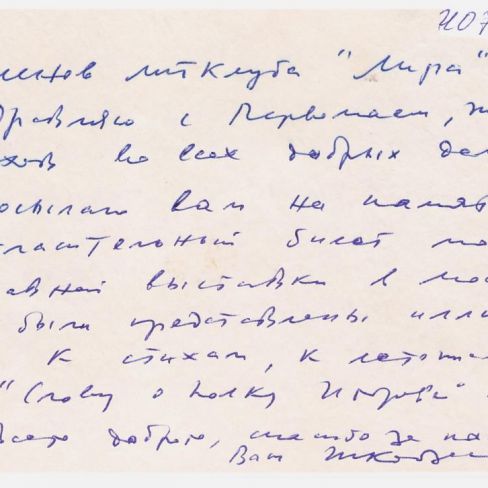 членов литклуба "Лира"
здравляю с Первомаем, ж
хов во всех добрых дел
осылаю вам на памя
гласительный билет мо
авней выставки в Мос
были представлены иллю
к стихам, к летопи
"Слову о полку Игореве"
Всего доброго, спасибо за па
Ваш